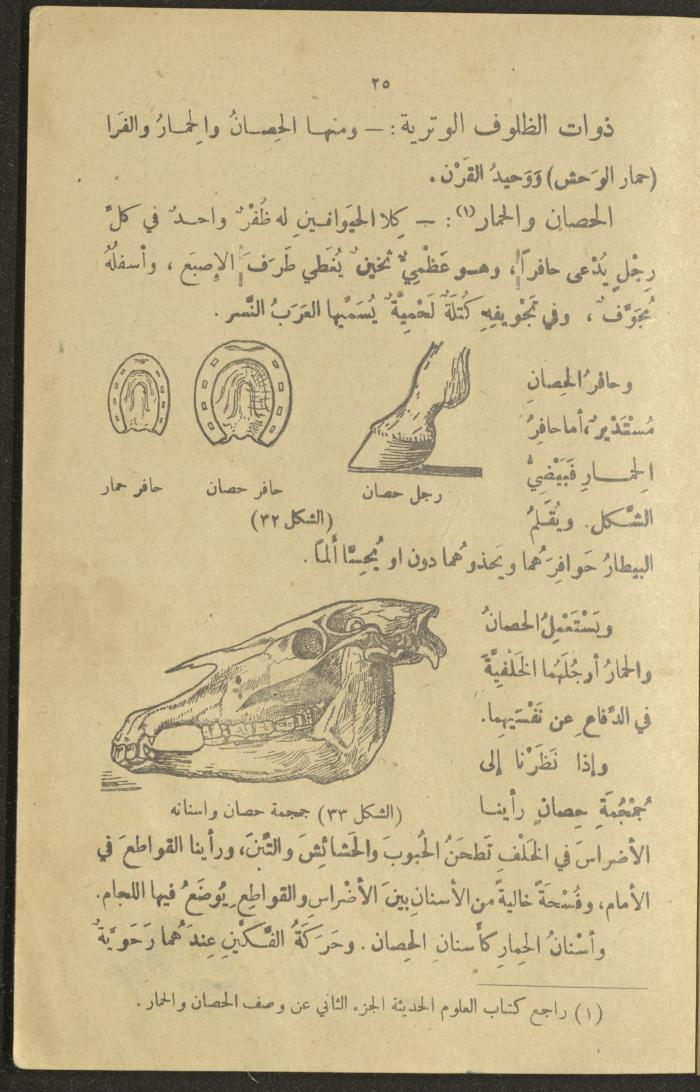 ٢٥
ذوات الظلوف الوترية : — ومنهـا الحِصـانُ والحِمـارُ والفَرا
(حمار الوَحش) وَوَحيدُ القَرْن .
الحصانِ والحمار(١) : — كِلا الحيَوانـينِ له ظُفْرٌ واحـدٌ في كلِّ
رِجْلٍ يُدْعى حافراً ، وهـو عَظْمِيٌّ ثخينٌ يُغَطي طَرَفَ الإِصبَع ، وأسفلُهُ
مُجَوَّفٌ ، وفي تَجْويفِهِ كُتلَةٌ لَحْمِيَّةٌ يُسَمِّيها العَرَبُ النَّسر .
وحافرُ الحصانِ
مُسْتَديرٌ،أماحافِرُ
الحِمـــارِ فَبَيْضِيُّ
الشَّكل. ويُقَلِّمُ
رجل حصان
حافر حصان
حافر حمار
(الشكل ٣٢)
البيطارُ حَوافِرَهُما ويَحذوهُما دون او يُحِسَّا أَلماً .
ويَسْتَعْمِلُ الحصانُ
والحمارُ أرجُلَهُما الخَلْفيَّةَ
في الدِّفاعِ عن نَفْسَيهِما.
وإذا نَظَرْنا إلى
جُمْجُمَةِ حِصانٍ رأينـا
(الشكل ٣٣) جمجمة حصان واسنانه
الأضراسَ في الخَلْفِ تَطحَنُ الحُبوبَ والحَشائِشَ والتِّبنَ، ورأينا القواطعَ في
الأمام، وفُسْحَةً خاليةً من الأسنانِ بينَ الأضْراسِ والقواطِعِ يُوضَعُ فيها اللجام.
وأسْنانُ الحِمارِ كأسنان الحِصان . وحَرَكَةُ الفَكَّينِ عِندَهُما رَحَويَّةٌ
(١) راجع كتاب العلوم الحديثة الجزء الثاني عن وصف الحصان والحمار .